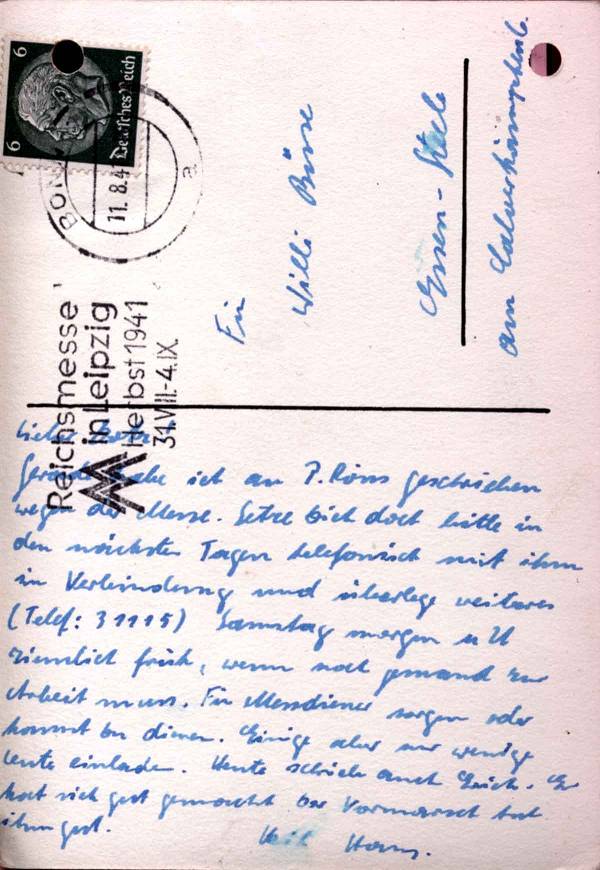 6
6
Deutsches Reich
BON
11.8.4
a
Reichsmesse
in Leipzig
Herbst 1941
31.VIII.-4.IX.
Für
Willi Büsse
Essen-Steele
am
Gerade habe ich an P. Röns geschrieben
wegen der Messe. Setze Dich doch bitte in
den nächsten Tagen telefonisch mit ihm
in Verbindung und überlege weiteres
(Telef: 31115) Samstag morgen
ziemlich früh, wenn noch jemand zur
Arbeit muss. Für Messdiener sorgen oder
kommt Du dienen. Einige aber nur wenige
Leute einladen. Heute schrieb auch Erich. Er
hat sich gut gemacht Der Vormarsch tut
ihm gut.
Heil Hans.